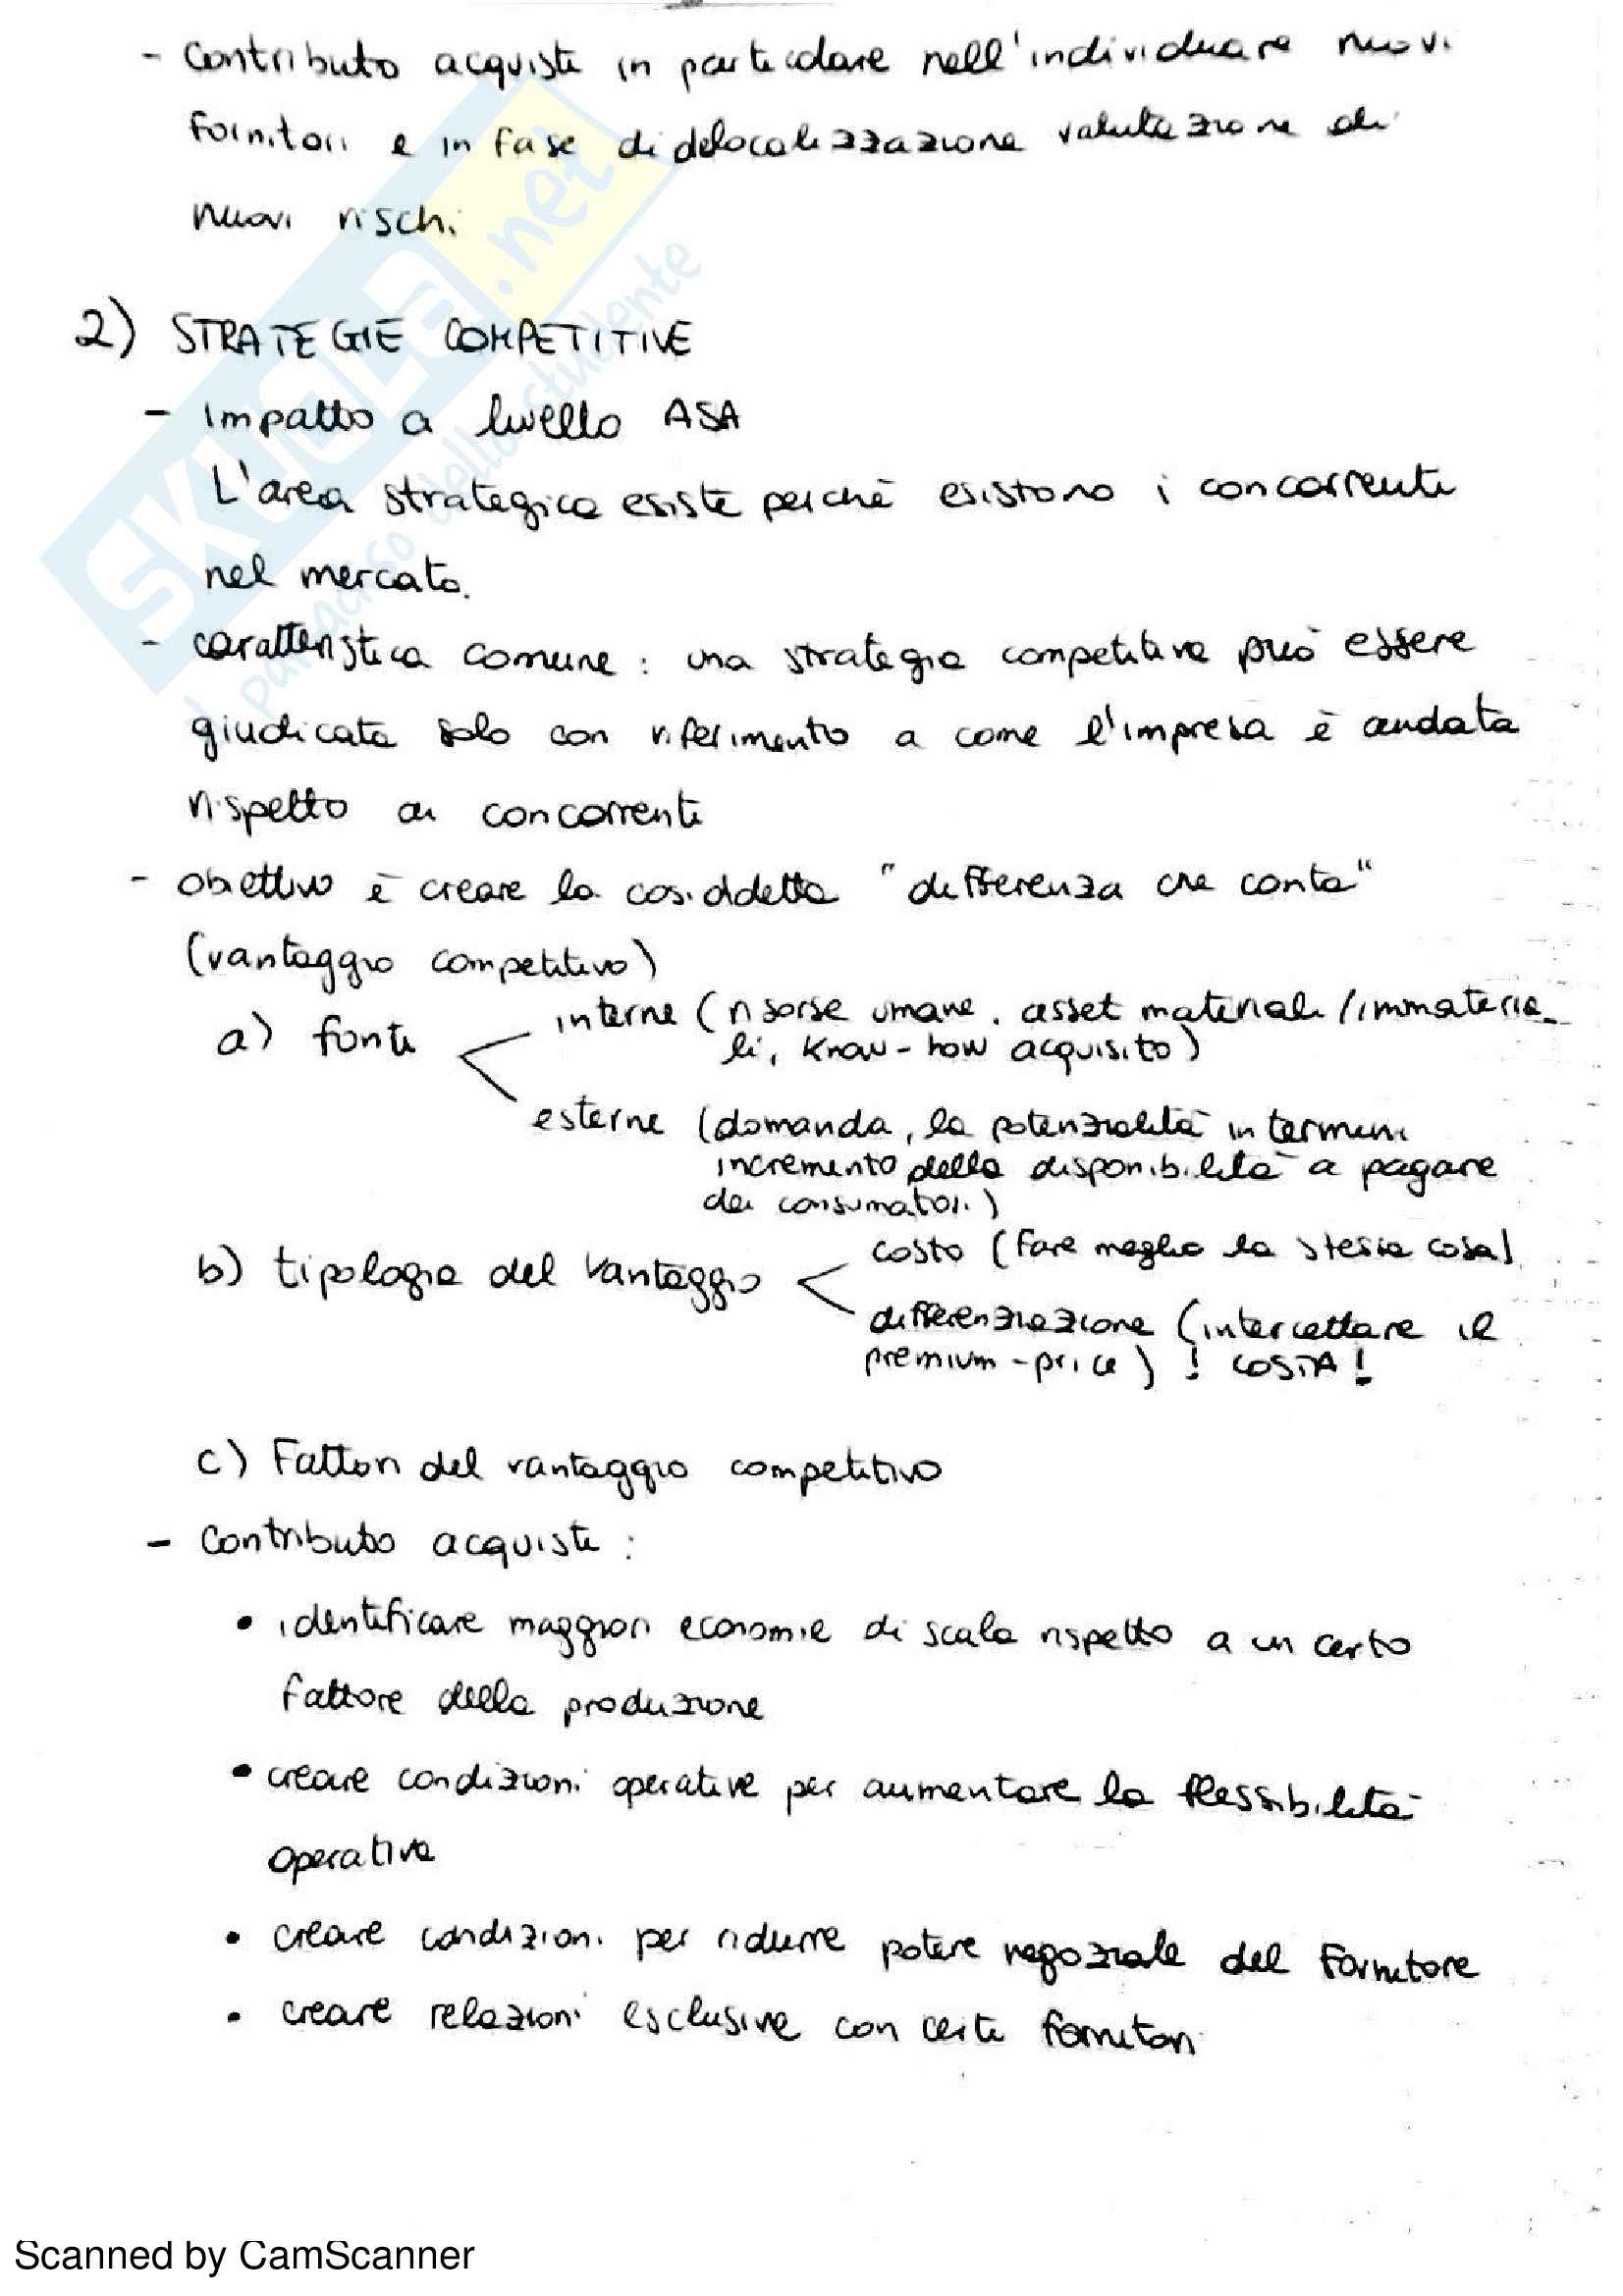 - Contributo acquisti in particolare nell'individuare nuovi
fornitori e in fase di delocalizzazione valutazione di
nuovi rischi
2) STRATEGIE COMPETITIVE
- Impatto a livello ASA
L'area strategica esiste perchè esistono i concorrenti
nel mercato.
- caratteristica comune : una strategia competitiva può essere
giudicata solo con riferimento a come l'impresa è andata
rispetto ai concorrenti
- obiettivo è creare la cosiddetta "differenza che conta"
(vantaggio competitivo)
a) fonti
interne (risorse umane, asset materiali/immateria_
li, know-how acquisito)
esterne (domanda, la potenzialità in termini
incremento della disponibilità a pagare
dei consumatori)
b) tipologia del vantaggio
costo (fare meglio la stessa cosa)
differenziazione (intercettare il
premium-price) ! COSTA !
c) Fattori del vantaggio competitivo
- Contributo acquisti :
• identificare maggiori economie di scala rispetto a un certo
fattore della produzione
• creare condizioni operative per aumentare la flessibilità
operativa
• creare condizioni per ridurre potere negoziale del fornitore
• creare relazioni esclusive con certi fornitori
SKUOLA.net
il paradiso dello studente
Scanned by CamScanner